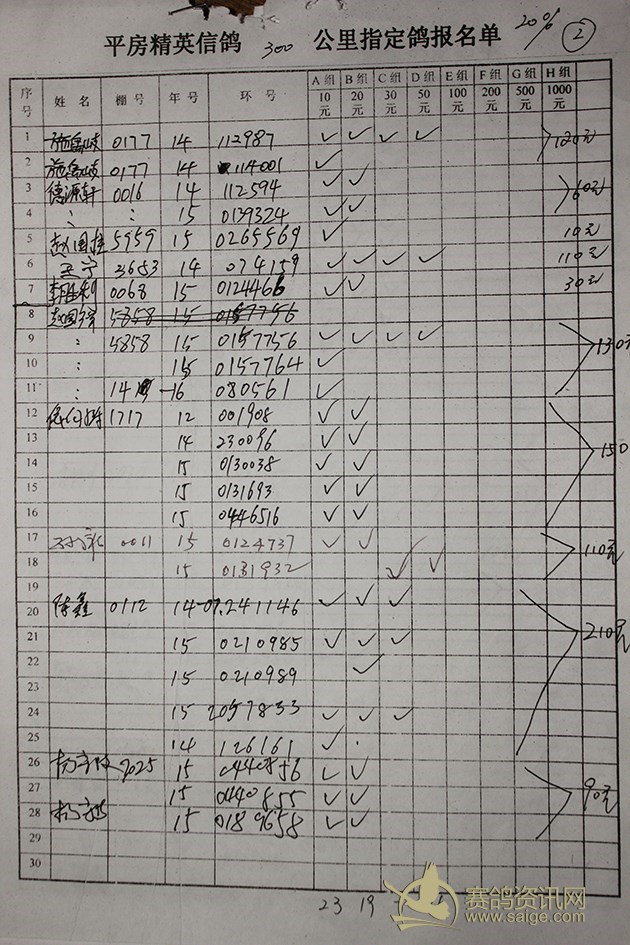 20% ②
平房精英信鸽 300 公里指定鸽报名单
序号 姓名 棚号 年号 环号 A组 10元 B组 20元 C组 30元 D组 50元 E组 100元 F组 200元 G组 500元 H组 1000元
1 0177 14 112987 ✓ ✓ ✓ ✓ 120元
2 0177 14 114001 ✓
3 德源轩 0016 14 112594 ✓ ✓ 60元
4 〃 〃 15 0139324 ✓ ✓
5 5959 15 0265569 ✓ 10元
6 王宁 3653 14 074159 ✓ ✓ ✓ ✓ 110元
7 李胜利 0068 15 0124466 ✓ ✓ 30元
8 5858 15 0157756
9 〃 5858 15 0157756 ✓ ✓ ✓ ✓ 130元
10 〃 15 0157764 ✓
11 〃 14 -16 080561 ✓
12 1717 12 001908 ✓ ✓ 150
13 14 230096 ✓ ✓
14 15 0130038 ✓ ✓
15 15 0131693 ✓ ✓
16 15 0446516 ✓ ✓
17 0011 15 0124737 ✓ ✓ 110元
18 15 0131932 ✓ ✓
19
20 陈鑫 0112 14-07.241146 ✓ ✓ ✓ 210元
21 15 0210985 ✓ ✓ ✓
22 15 0210989 ✓
23
24 15 2057833 ✓ ✓ ✓
25 14 126161 ✓
26 9025 15 0440856 ✓ ✓ 90元
27 15 0440855 ✓ ✓
28 15 0189658 ✓ ✓
29
30
23 19
赛鸽资讯网
www.saige.com